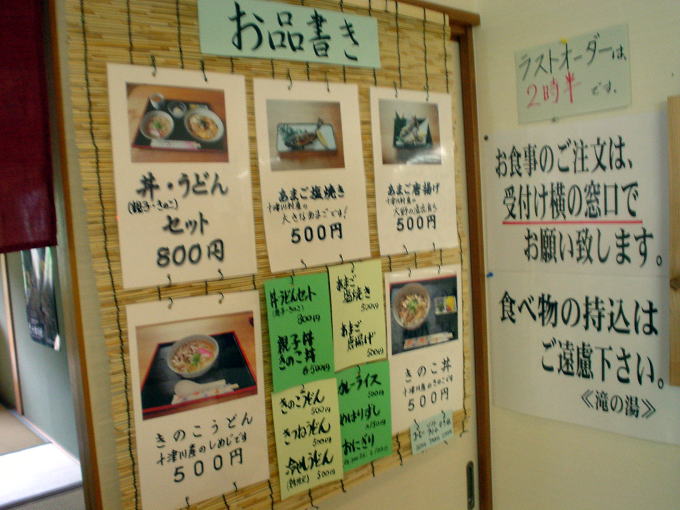 お品書き
丼・うどん
(親子・きのこ)
セット
800円
あまご塩焼き
十津川村産の
大きなあまごです!
500円
あまご唐揚げ
十津川村産の
500円
きのこうどん
十津川産のしめじです
500円
丼うどんセット
(親子・きのこ)
800円
親子丼
きのこ丼
各500円
きのこうどん
500円
きつねうどん
500円
冷やしうどん
500円
あまご
塩焼き
500円
あまご
唐揚げ
500円
カレーライス
500円
めはりずし
おにぎり
きのこ丼
十津川産のきのこです
500円
ラストオーダーは、
2時半です。
お食事のご注文は、
受付け横の窓口で
お願い致します。
食べ物の持込は
ご遠慮下さい。
≪滝の湯≫